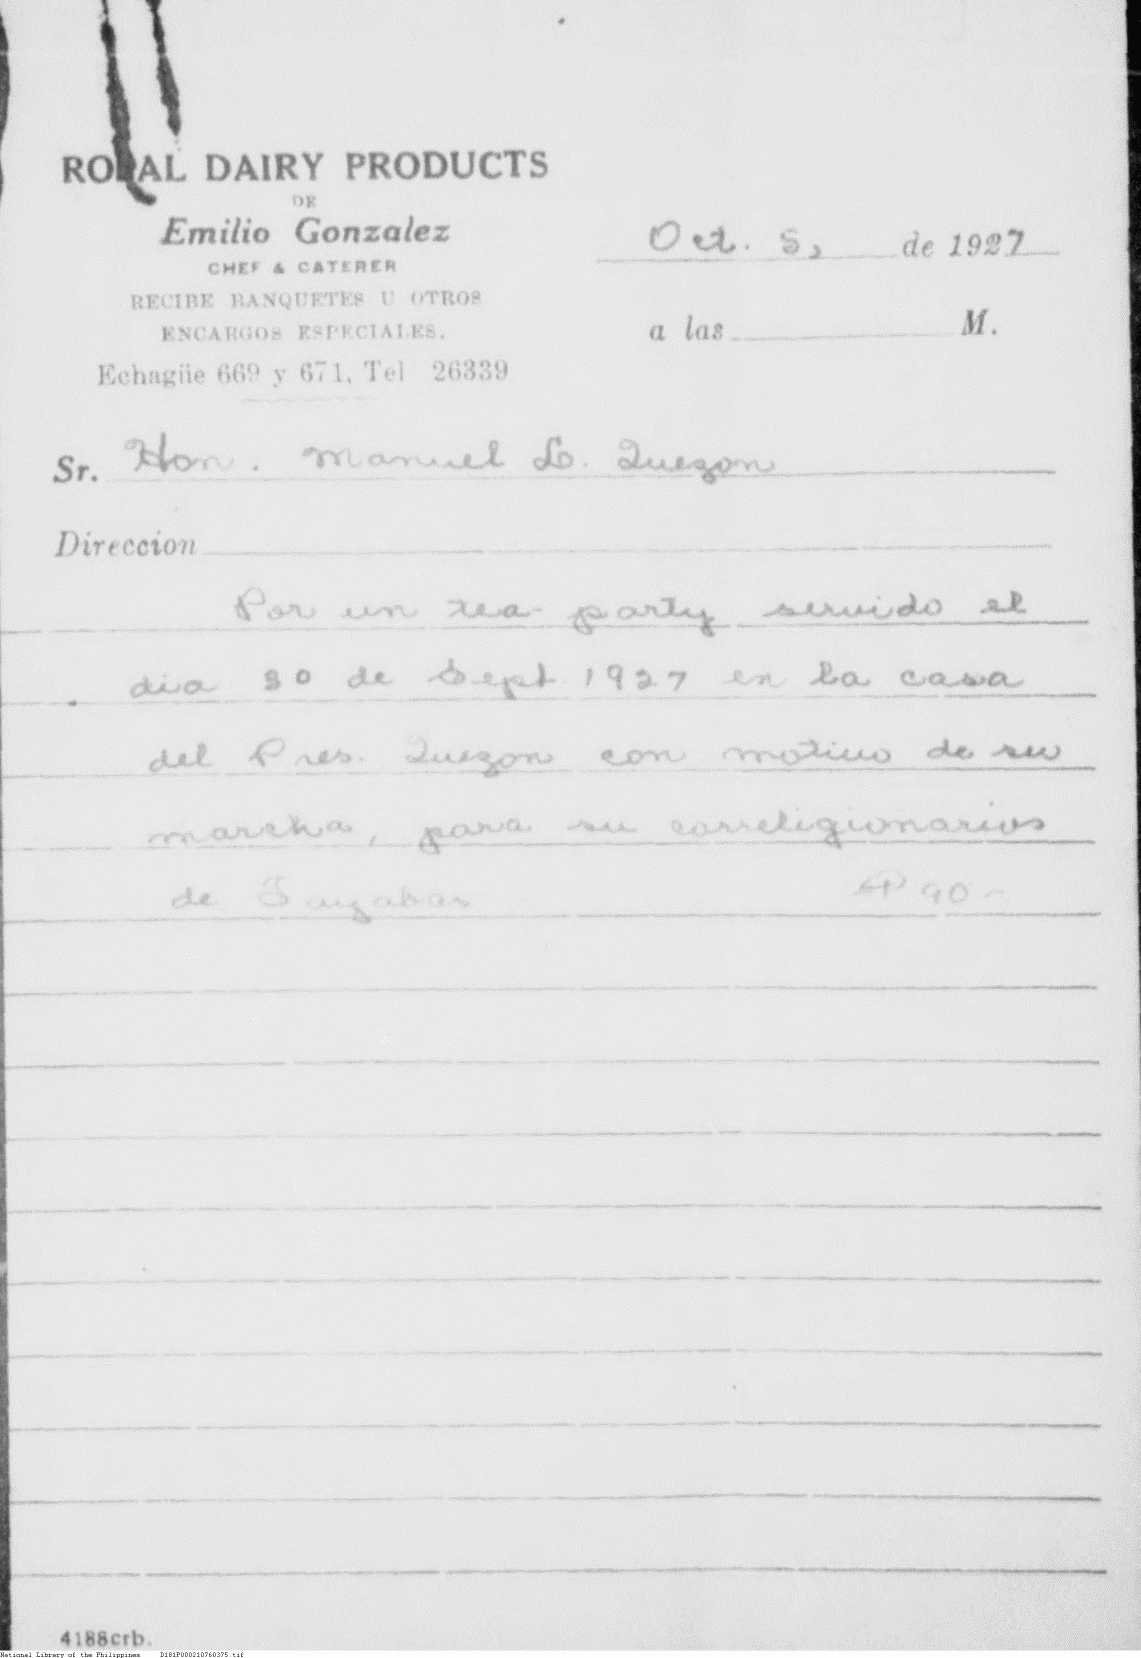 ROYAL DAIRY PRODUCTS
DE
Emilio Gonzalez
CHEF & CATERER
RECIBE BANQUETES U OTROS
ENCARGOS ESPECIALES.
Echagüe 669 y 671, Tel 26339
Oct. 5, de 1927
a las M.
Sr. Hon. Manuel L. Quezon
Direccion
Por un tea-party servido el
dia 30 de Sept 1927 en la casa
del Pres. Quezon con motivo de su
marcha, para su correligionarios
de Tayabas ₱ 90-
4188crb.
National Library of the Philippines D181P000210760375.tif